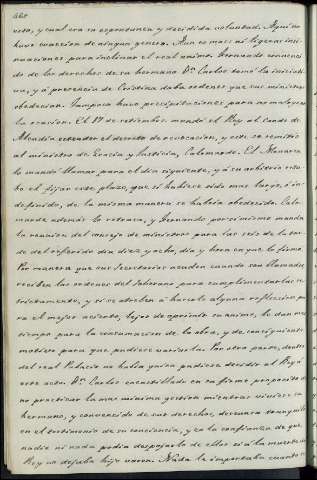 668
esto, y cual era su espontanea y decidida voluntad. Aqui no
huvo coaccion de ningun genero. Aun es mas: ni ligeras insi-
nuaciones para inclinar el real animo. Fernando convenci-
do de los derechos de su hermano Dn. Carlos tomó la iniciati-
va, y á presencia de Cristina daba ordenes que sus ministros
obedecian. Tampoco huvo precipitaciones para no malograr
la ocasion. El 17 de setiembre mandó el Rey al Conde de
Alcudia estender el decreto de revocacion, y este se remitió
al ministro de Gracia y Justicia, Calomarde. El Monarca
lo mandó llamar para el dia siguiente, y á su arbitrio estu-
bo el fijar este plazo, que si hubiese sido mas largo, ó in-
definido, de la misma manera se habria obedecido. Calo-
marde además lo retrasa, y Fernando, por si mismo manda
la reunion del consejo de ministros para las seis de la tar-
de del referido dia diez y ocho, dia y hora en que lo firma.
Por manera que sus Secretarios acuden cuando son llamados,
reciben las ordenes del Soberano para cumplimentarlas es-
trictamente, y si se atreben á hacerle alguna reflexion pa-
ra el mejor acierto, lejos de oprimir su animo, le dan mas
tiempo para la consumacion de la obra, y de consiguiente
motivo para que pudiese variarla. Por otra parte, dentro
del real Palacio no habia quien pudiese decidir al Rey á
este acto. Dn. Carlos encastillado en su firme proposito de
no practicar la mas minima gestion mientras viviese su
hermano, y convencido de sus derechos, descansa tranquilo
en el testimonio de su conciencia, y en la confianza de que
nadie ni nada podia despojarle de ellos si á la muerte del
Rey no dejaba hijo varon. Nada le importaba cuanto